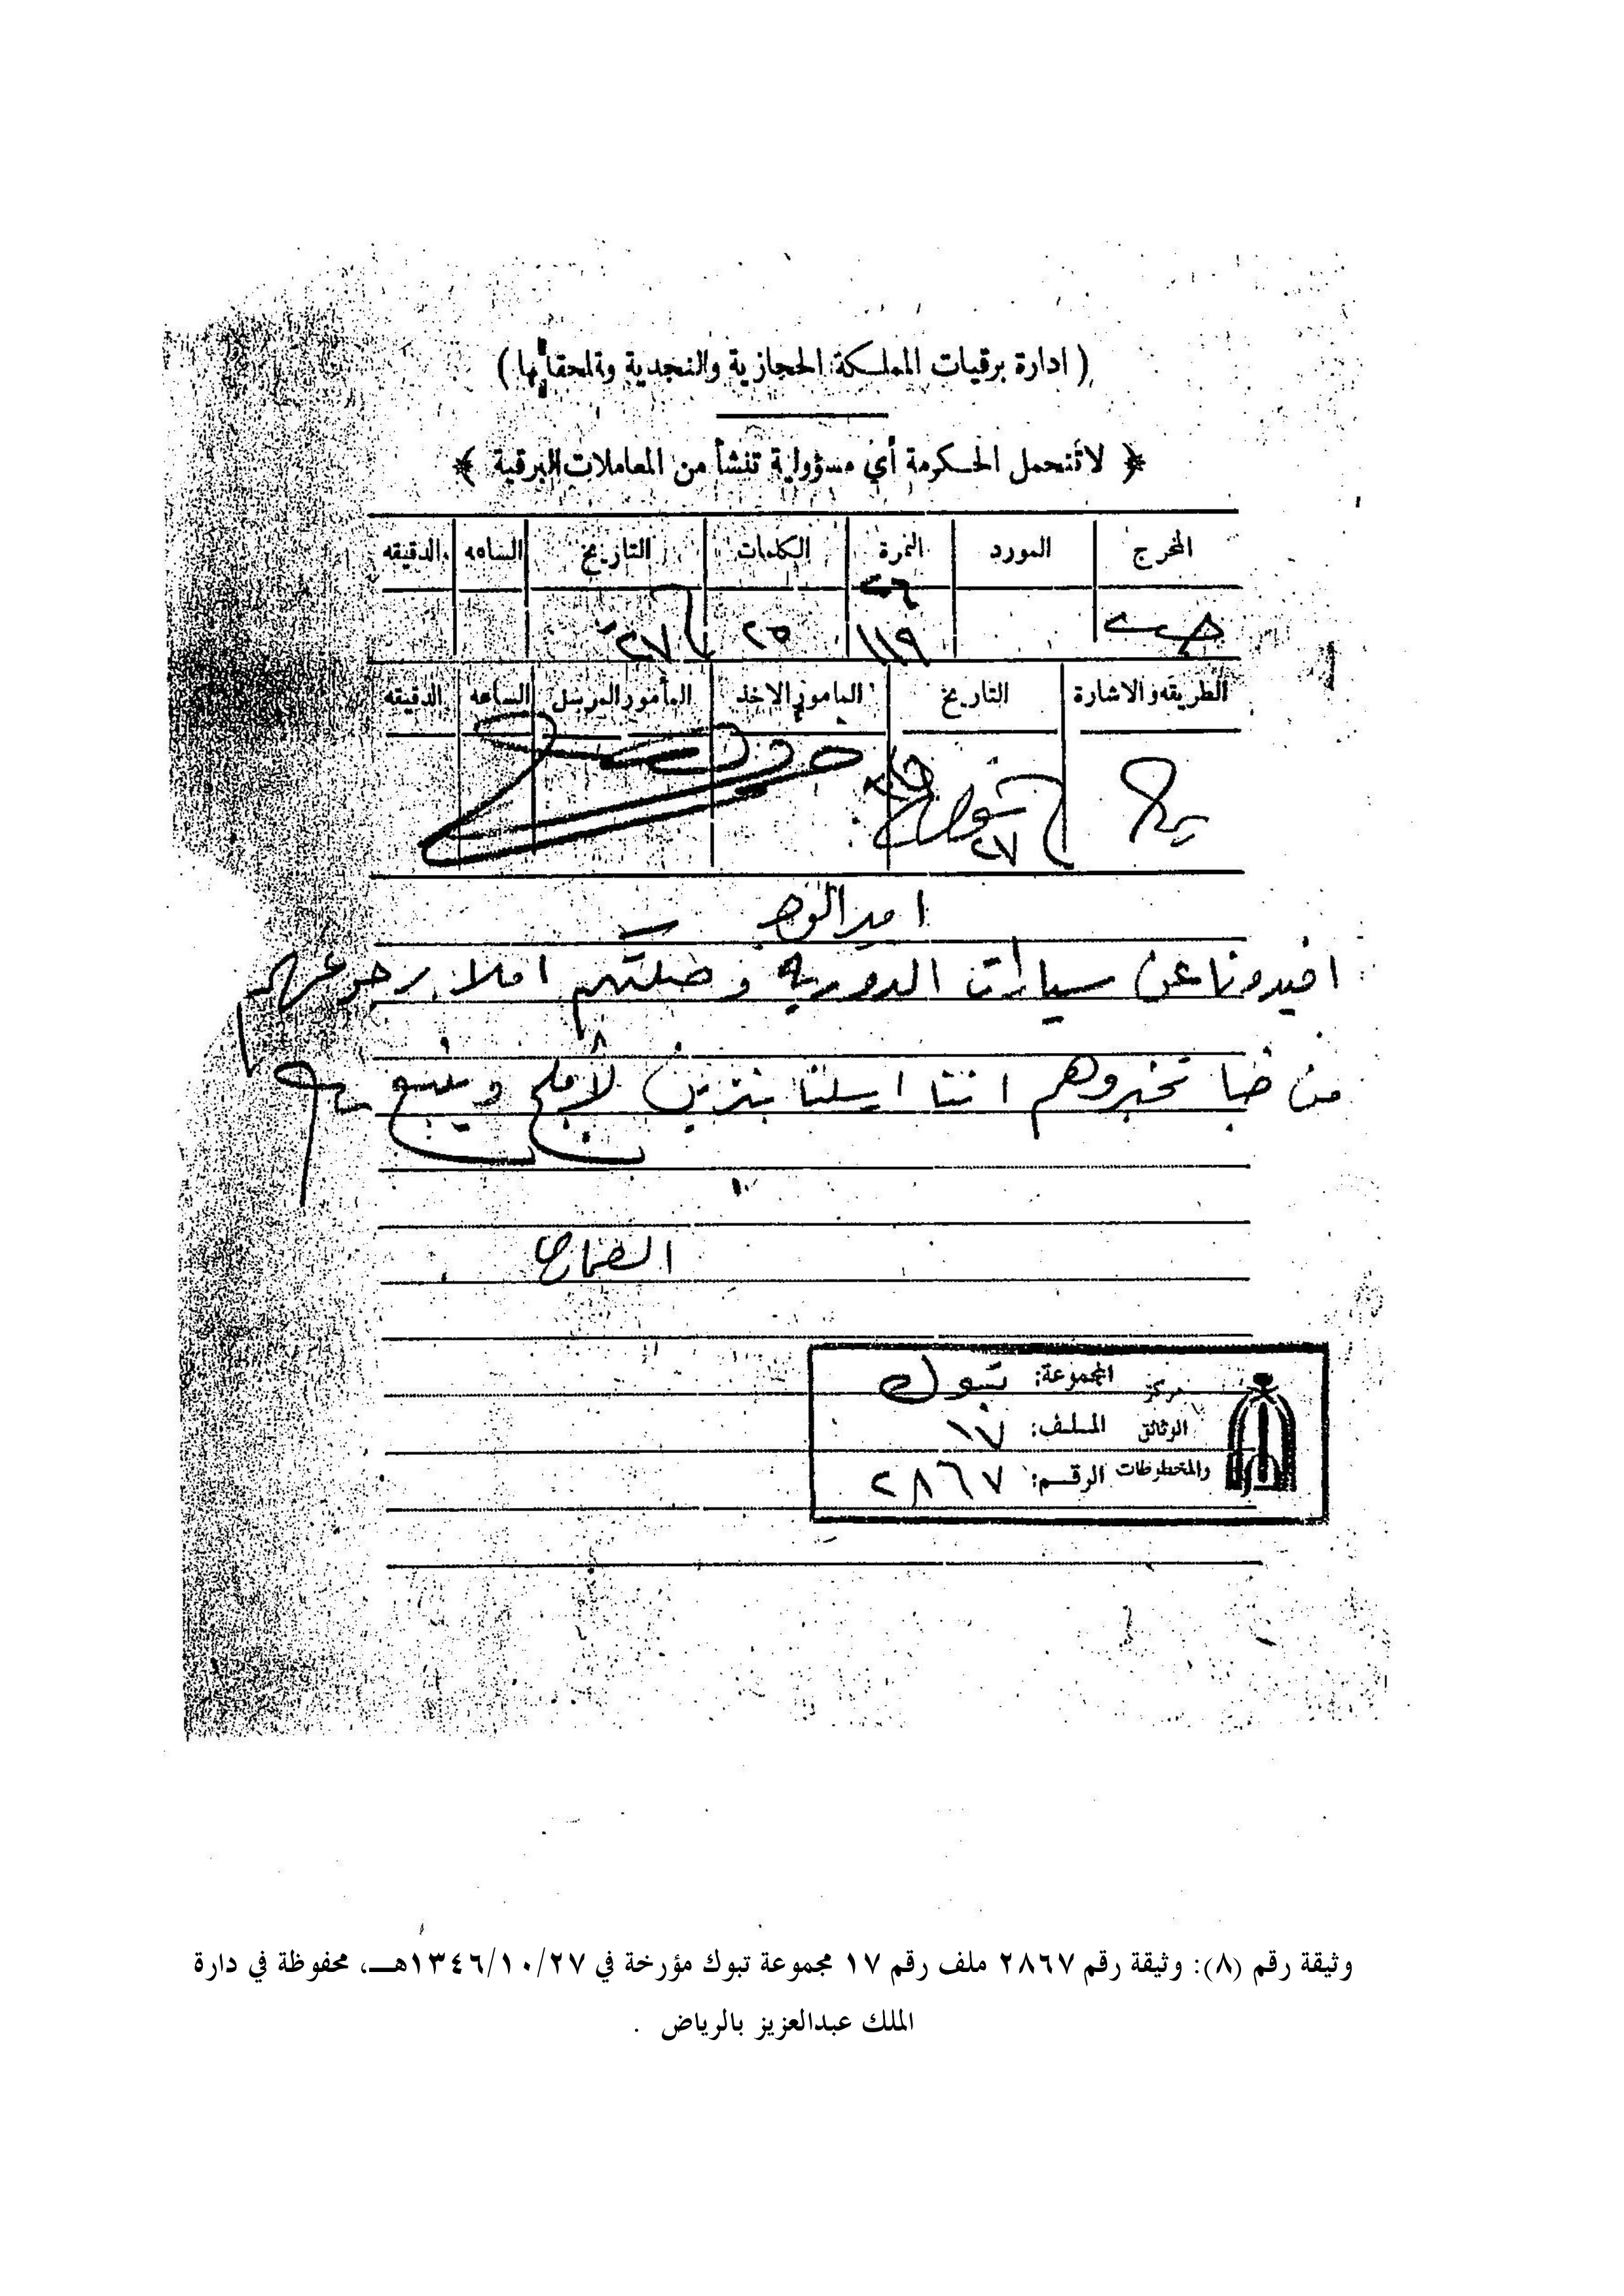 ( ادارة برقيات المملكة الحجازية والنجدية وملحقاتها )
﴿ لا تتحمل الحكومة أي مسؤولية تنشأ من المعاملات البرقية ﴾
المخرج المورد النمرة الكلمات التاريخ الساعه الدقيقه
١١٩ ٢٥ ٢٧
الطريقه والاشارة التاريخ المامور الاخذ المأمور المرسل الساعه الدقيقه
شوال
٢٧
امير الوجه
افيدونا عن سيارات الدورية وصلتهم املا رجوعها
من ضبا تخبروهم اننا ارسلنا بنزين لأملج وينبع
مركز المجموعة: تبوك
الوثائق الملف: ١٧
والمخطوطات الرقم: ٢٨٦٧
وثيقة رقم (٨): وثيقة رقم ٢٨٦٧ ملف رقم ١٧ مجموعة تبوك مؤرخة في ١٣٤٦/١٠/٢٧هـ، محفوظة في دارة
الملك عبدالعزيز بالرياض .